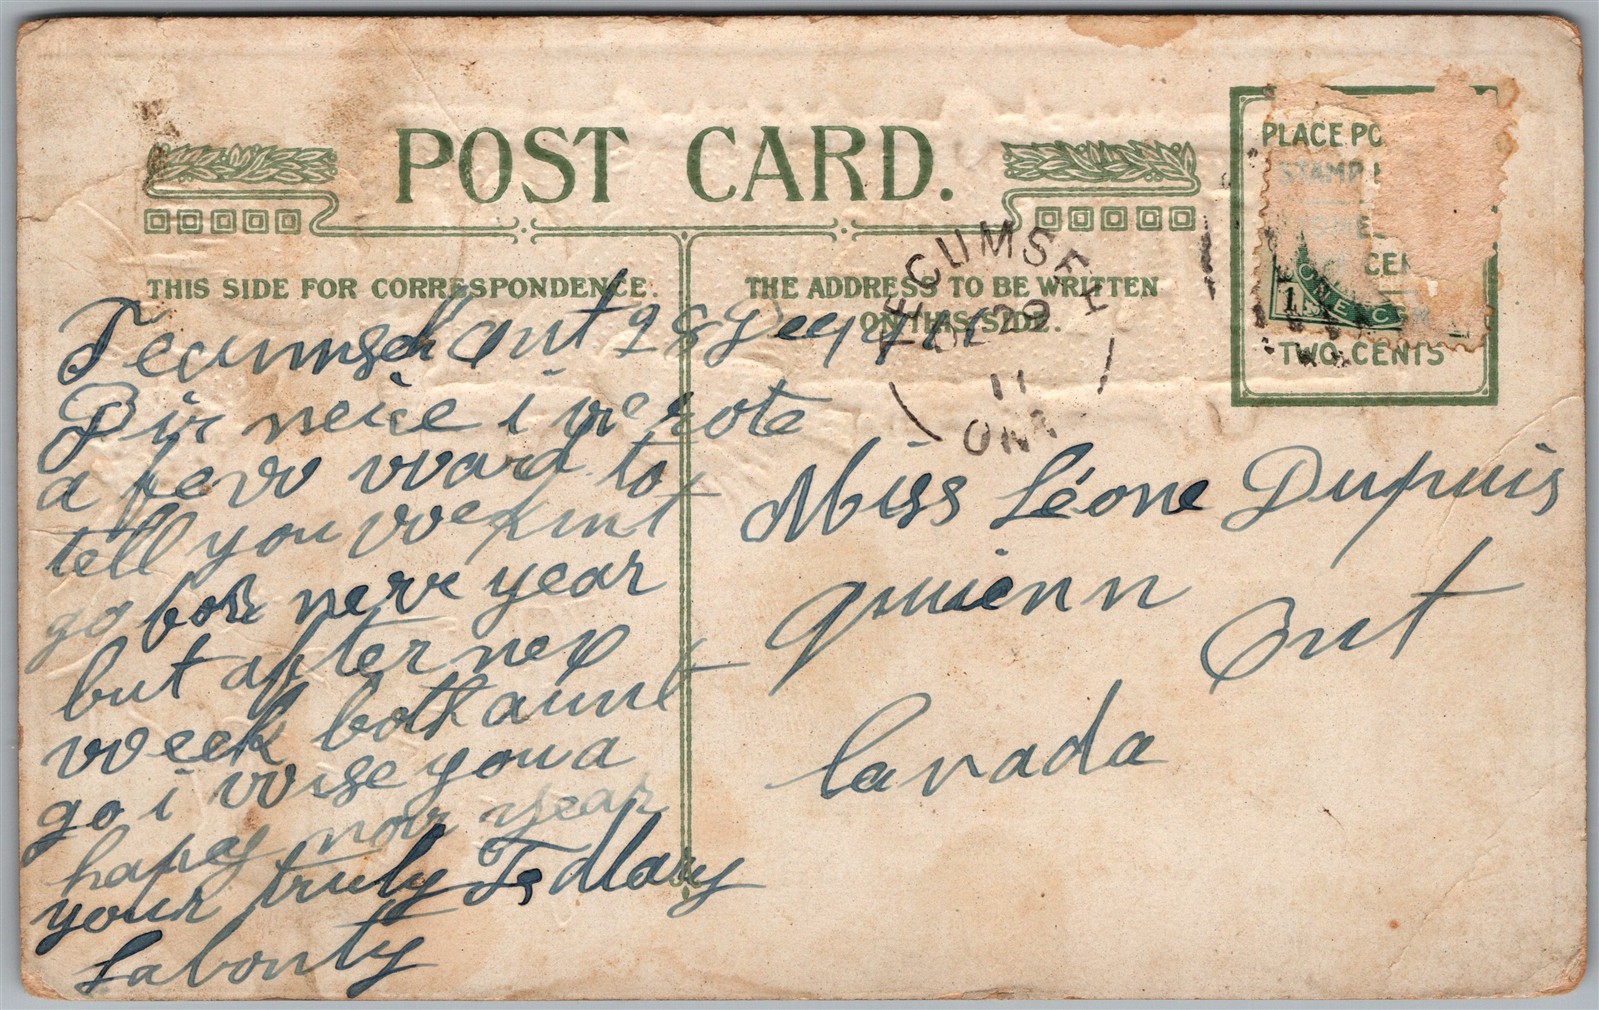 POST CARD.
THIS SIDE FOR CORRESPONDENCE.
THE ADDRESS TO BE WRITTEN
ON THIS SIDE.
PLACE PO
STAMP
CE
TWO CENTS
TECUMSEH
DE 29
11
ONT
1 ONE CE
Tecumseh Ont 28 Dec 1911
Dir neice i wrote
a few word to
tell you we
go for new year
but after nex
week both aunt
go i wise you a
hapey now year
your truly Mary
Labonty
Miss Léone Dupuis
Ont
Canada